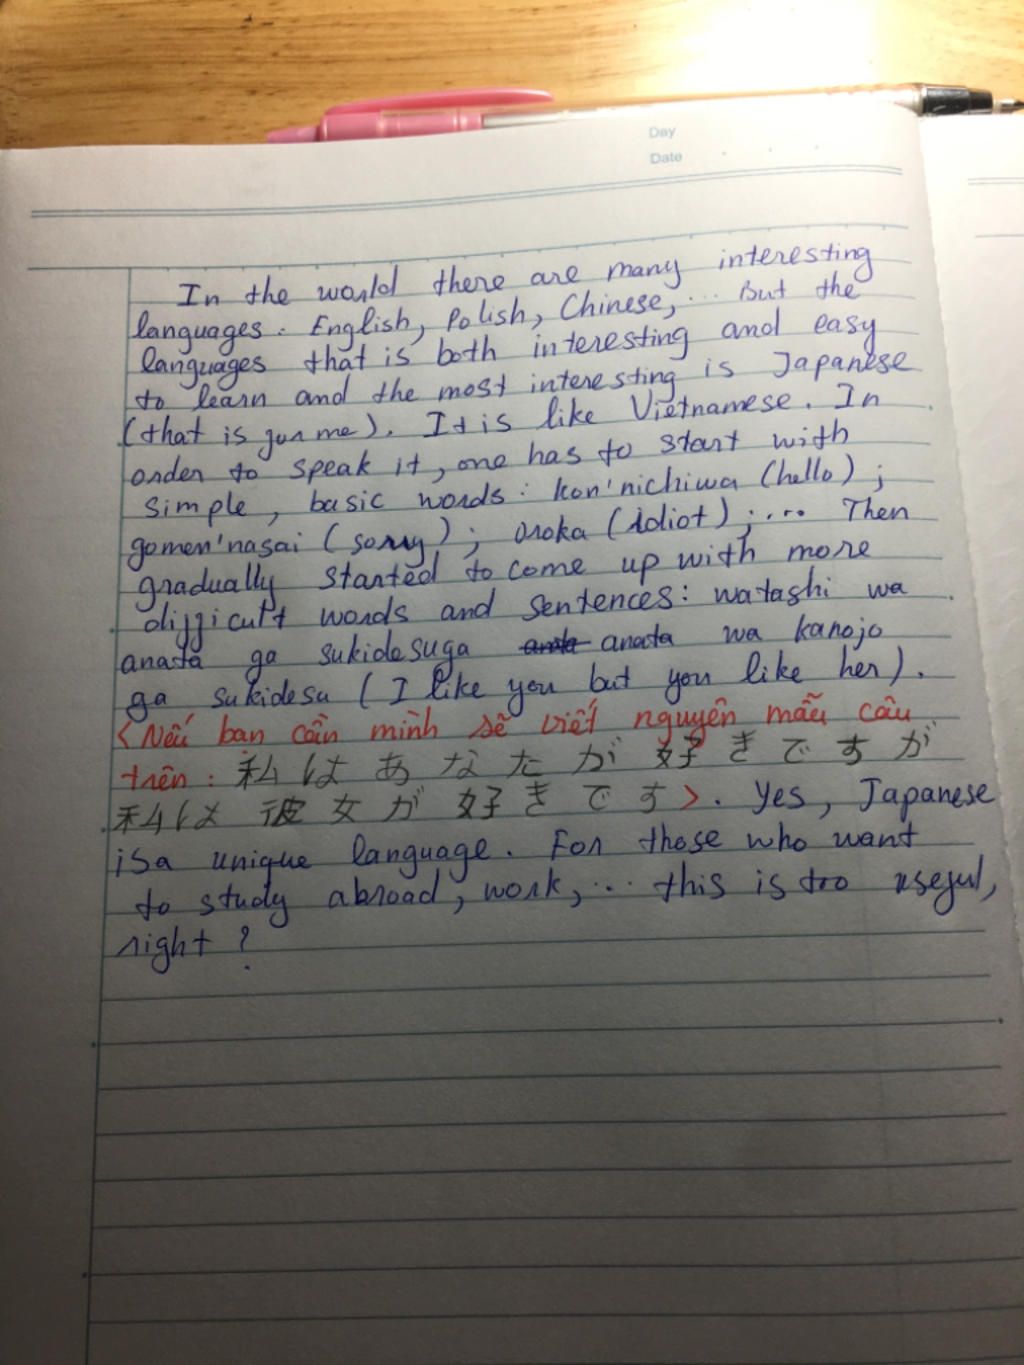 Day
Date
In the world there are many interesting
languages. English, Polish, Chinese, ... But the
languages that is both interesting and easy
to learn and the most interesting is Japanese
(that is for me). It is like Vietnamese. In
order to speak it, one has to start with
simple, basic words: kon'nichiwa (hello);
gomen'nasai (sorry); oroka (idiot); .... Then
gradually started to come up with more
difficult words and sentences: watashi wa
anata ga sukidesuga anata wa kanojo
ga sukidesu (I like you but you like her).
<Nếu bạn cần mình sẽ viết nguyên mẫu câu
trên: 私はあなたが好きですが
私は彼女が好きです>. Yes, Japanese
is a unique language. For those who want
to study abroad, work, ... this is too useful,
right?